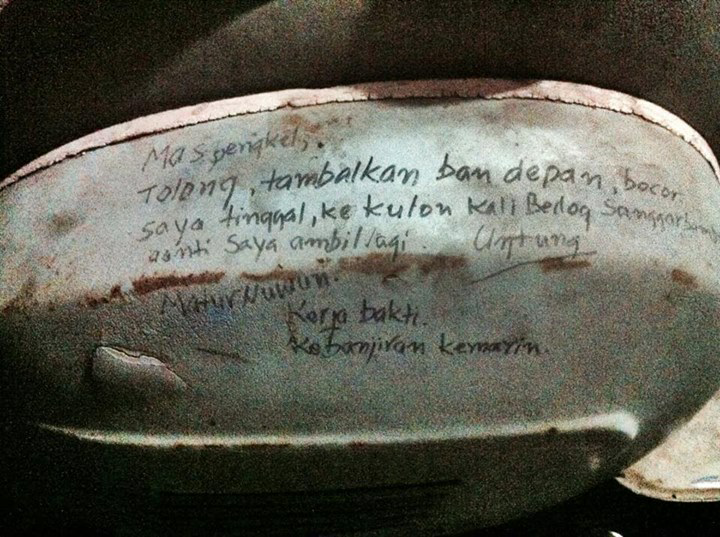 Mas bengkel,.
Tolong, tambalkan ban depan, bocor
saya tinggal, ke kulon kali Bedog Sanggar
nanti saya ambil lagi. Untung
Matur Nuwun.
Kerja bakti.
Kebanjiran kemarin.